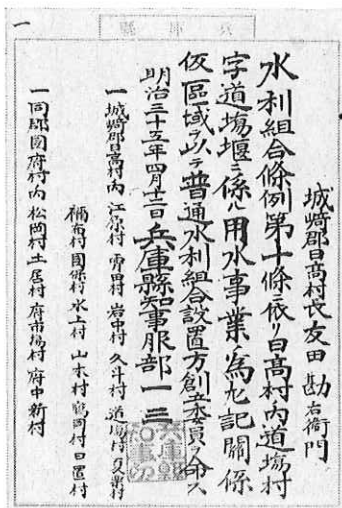 兵庫縣
一
城崎郡日高村長友田勘右衛門
水利組合條例第十條ニ依リ日高村内道塲村
字道塲堰ニ係ル用水事業ノ為左記關係
仮區域ヲ以テ普通水利組合設置方創立委員ヲ命ス
明治三十五年四月十二日兵庫縣知事服部一三
一城崎郡日高村内 江原村 宵田村 岩中村 久斗村 道塲村 夏栗村
祢布村 國保村 水上村 山本村 鶴岡村 日置村
一同郡國府村内 松岡村 土居村 府市塲村 府中新村
兵庫縣知事印